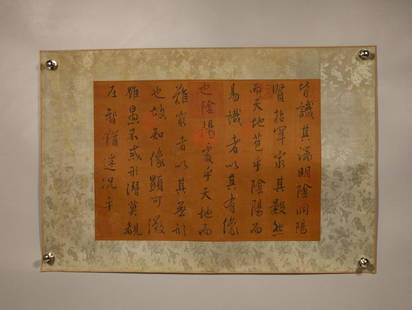 皆識其端明陰洞陽
賢哲罕窮其數然
而天地苞乎陰陽而
易識者以其有像
也陰陽處乎天地而
難窮者以其無形
也故知像顯可徵
雖愚不惑形潛莫覩
在智猶迷況乎